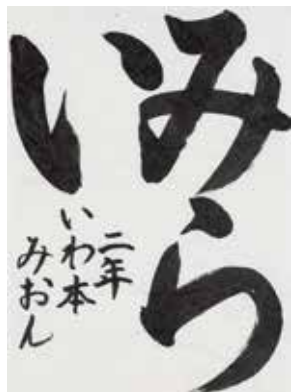 みら
い
二年
いわ本
みおん